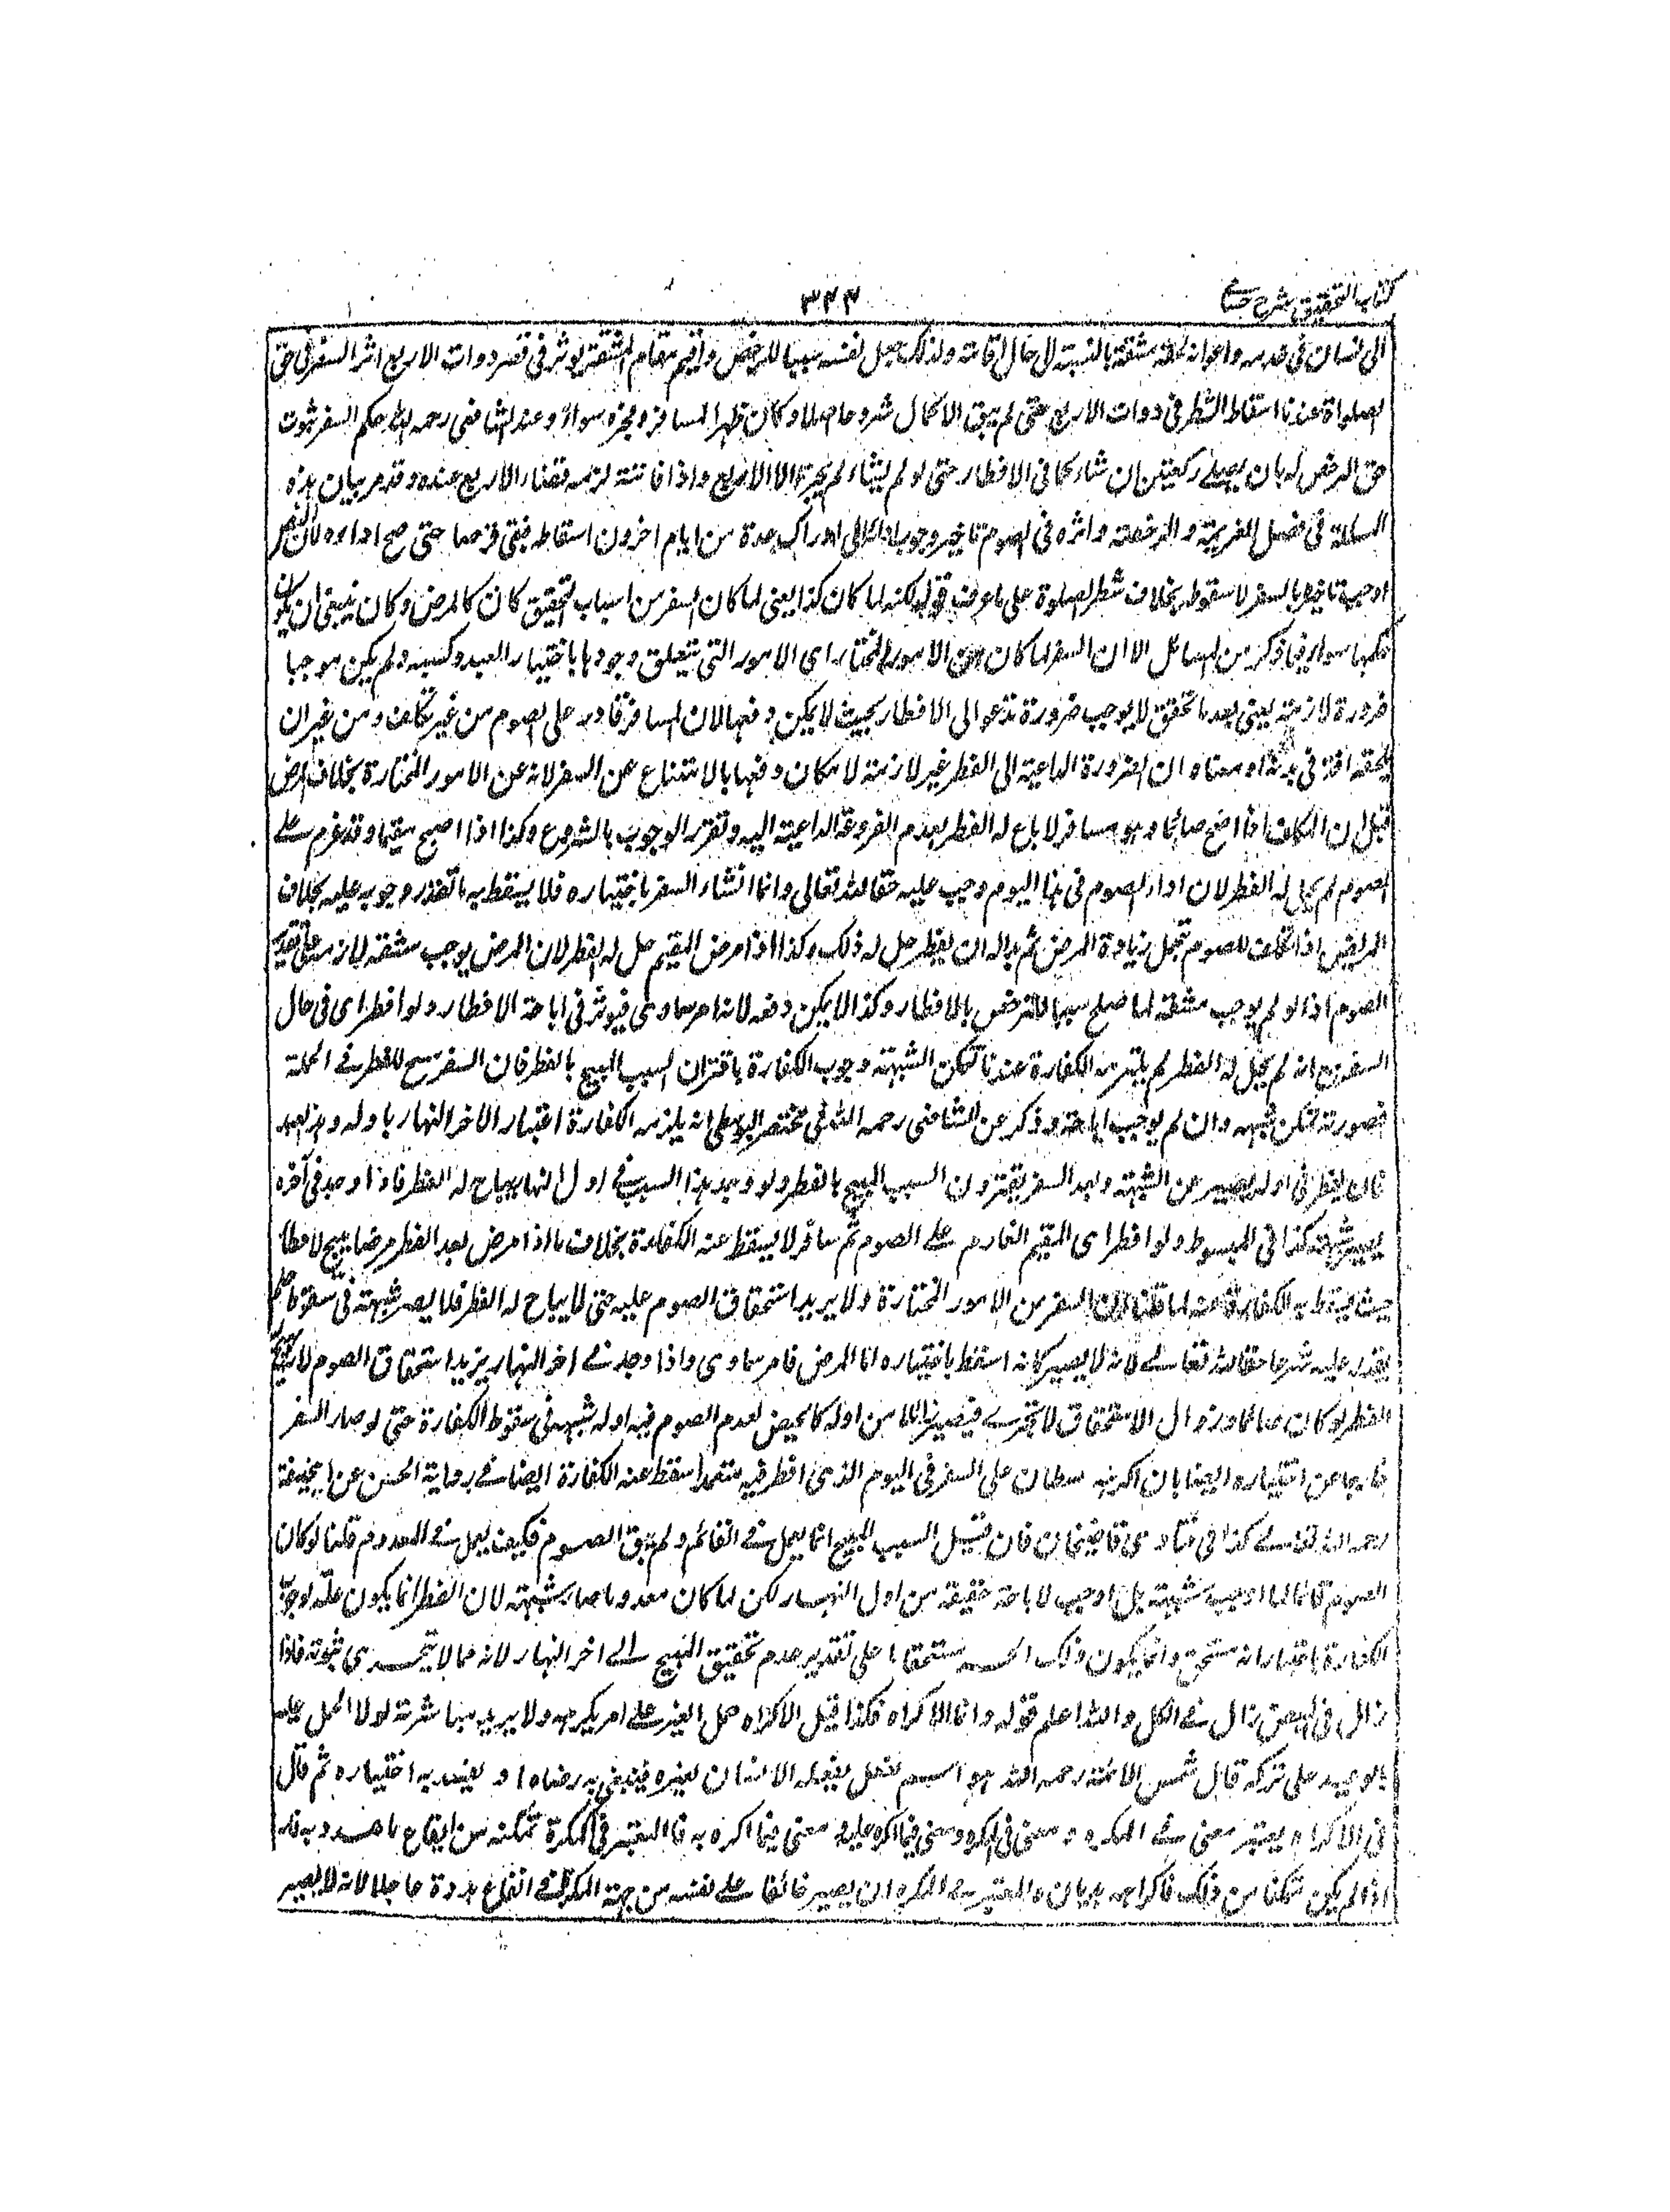 كتاب التحقيق شرح حسامي
٣٤٤
الى انسان في خدمه واعوانه لحقته مشقة بالنسبة الى حال اقامته ولذلك جعل نفسه سببا للرخص واقيم مقام المشقة يوثر في قصر ذوات الاربع اثر السفر في حق
الصلواة عندنا اسقاط الشطر في ذوات الاربع حتى لم يبق الاكمال مشروعا اصلا وكان ظهر المسافر وفجره سواء وعند الشافعى رحمه الله حكم السفر ثبوت
حق الرخص له بان يصلے ركعتين ان شاء كما في الافطار حتى لو لم يشاء لم يجزه الا الاربع واذا فاتته لزمه قضاء الاربع عنده وقد مر بيان هذه
المسئلة في فصل العزيمة والرخصة واثره في الصوم تاخير وجوب ادائه الى ادراك عدة من ايام اخر دون اسقاطه فبقى فرضا حتى صح اداوه لان النص
اوجب تاخيره بالسفر لا سقوطه بخلاف شطر الصلوة على ما عرفت قوله لكنه لما كان كذا يعنى لما كان السفر من اسباب التحقيق كان كالمرض وكان ينبغى ان يكون
حكمها سواء فيما ذكر من المسائل الا ان السفر لما كان من الامور المختارة اى الامور التى تتعلق وجودها باختيار العبد وكسبه ولم يكن موجبا
ضرورة لازمة يعنى بعد ما تحقق لا يوجب ضرورة تدعو الى الافطار بحيث لا يمكن دفعها لان المسافر قادر على الصوم من غير تكلف ومن غير ان
يلحقه افة في بدنه او معناه ان الضرورة الداعية الى الفطر غير لازمة لامكان دفعها بالامتناع عن السفر لانه عن الامور المختارة بخلاف المرض
قيل ان المكلف اذا اصبح صائما وهو مسافر لا يباح له الفطر لعدم الضرورة الداعية اليه وتقرر الوجوب بالشروع وكذا اذا اصبح مقيما وقد عزم علے
الصوم لم يحل له الفطر لان اداء الصوم في هذا اليوم وجب عليه حقا لله تعالى وانما انشاء السفر باختياره فلا يسقط به ما تقرر وجوبه عليه بخلاف
المريض اذا تكلف للصوم تحمل زيادة المرض ثم بدا له ان يفطر حل له ذلك وكذا اذا مرض المقيم حل له الفطر لان المرض يوجب مشقة لازمة على تقدير
الصوم اذ لو لم يوجب مشقة لما صلح سببا للترخص بالافطار وكذا لا يمكن دفعه لانه امر سماوى فيوثر في اباحة الافطار ولو افطر اى في حال
السفر مع انه لم يحل له الفطر لم يلتزمه الكفارة عندنا لتمكن الشبهة وجوب الكفارة باقتران السبب المبيح بالفطر فان السفر مبيح للفطر فے الجملة
فصورته تمكن شبهه وان لم يوجب اباحة وذكر عن الشافعى رحمه الله في مختصر البويطى انه يلزمه الكفارة اعتبار الاخر النهار باوله وهذا بعيد
فان يفطر في اوله يصير عن الشبهة وبعد السفر يقترن السبب المبيح بالفطر ولو وجد هذا السبب فے اول النهار يباح له الفطر فاذا وجد في آخره
يصير شبهة كذا في المبسوط ولو افطر اى المقيم العازم علے الصوم ثم سافر لا يسقط عنه الكفارة بخلاف ما اذا مرض بعد الفطر مرضا يبيح الافطار
حيث يسقط به الكفارة عنه لما قلنا ان السفر من الامور المختارة ولا يزيد استحقاق الصوم عليه حتى لا يباح له الفطر فلا يصير شبهة في سقوط ما
يقدر عليه شرعا حقا لله تعالے لانه لا يصير كانه اسقط باختياره اما المرض فامر سماوى واذا وجد فے اخر النهار يزيد استحقاق الصوم لانه يبيح
الفطر لو كان صائما وزوال الاستحقاق لا يتجزے فيصير زائلا من اوله كالحيض لعدم الصوم فيه اوله شبهه في سقوط الكفارة حتى لو صار السفر
خارجا عن اختياره ايضا بان اكرهه سلطان على السفر في اليوم الذى افطر فيه متعمدا سقط عنه الكفارة ايضا فے رواية الحسن عن ابيحنيفة
رحمه الله تعالے كذا في فتاوى قاضيخان فان قيل السبب المبيح انما يعمل فے القائم ولم يبق الصوم فكيف يعمل فے المعدوم قلنا لو كان
الصوم قائما لما اوجب شبهة بل اوجب الاباحة حقيقة من اول النهار لكن لما كان معدوما صار شبهة لان الفطر انما يكون علة لوجوب
الكفارة باعتبار انه مستحق وانما يكون ذلك مستحقا على تقدير عدم تحقيق المبيح الے اخر النهار لانه مما لا يتجزى ثبوته فاذا
زال في البعض زال فے الكل والله اعلم قوله واما الاكراه فكذا قيل الاكراه حمل الغير علے امر يكرهه ولا يريد مباشرته لولا الحمل عليه
بالوعيد على تركه قال شمس الائمة رحمه الله هو اسم لفعل يفعله الانسان بغيره فينتفى به رضاه او يفسد به اختياره ثم قال
فى الاكراه يعتبر معنى فے المكره ومعنى في المكره ومعنى فيما اكره عليه ومعنى فيما اكره به فالمعتبر في المكره تمكنه من ايقاع ما هدد به فانه
اذا لم يكن متمكنا من ذلك فاكراهه هذيان والمعتبر فے المكره ان يصير خائفا علے نفسه من جهة المكره فے ايقاع هدده عاجلا لانه لا يصير